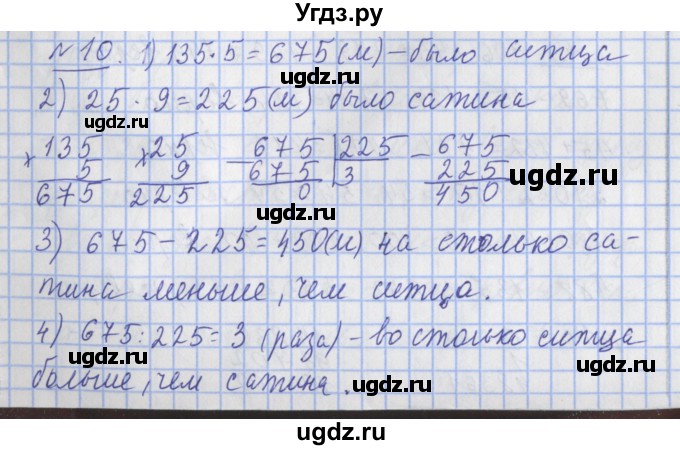 Угдз.ру
№10. 1) 135·5=675(м)-было ситца
2) 25·9=225(м) было сатина
135 25 675 225 675
× 5 × 9 - 675 3 - 225
675 225 0 450
3) 675-225=450(м) на столько са-
тина меньше, чем ситца.
4) 675:225=3 (раза)-во столько ситца
больше, чем сатина.
ugdz.ru
ugdz.ru
ugdz.ru
ugdz.ru
ugdz.ru
ugdz.ru
ugdz.ru
ugdz.ru